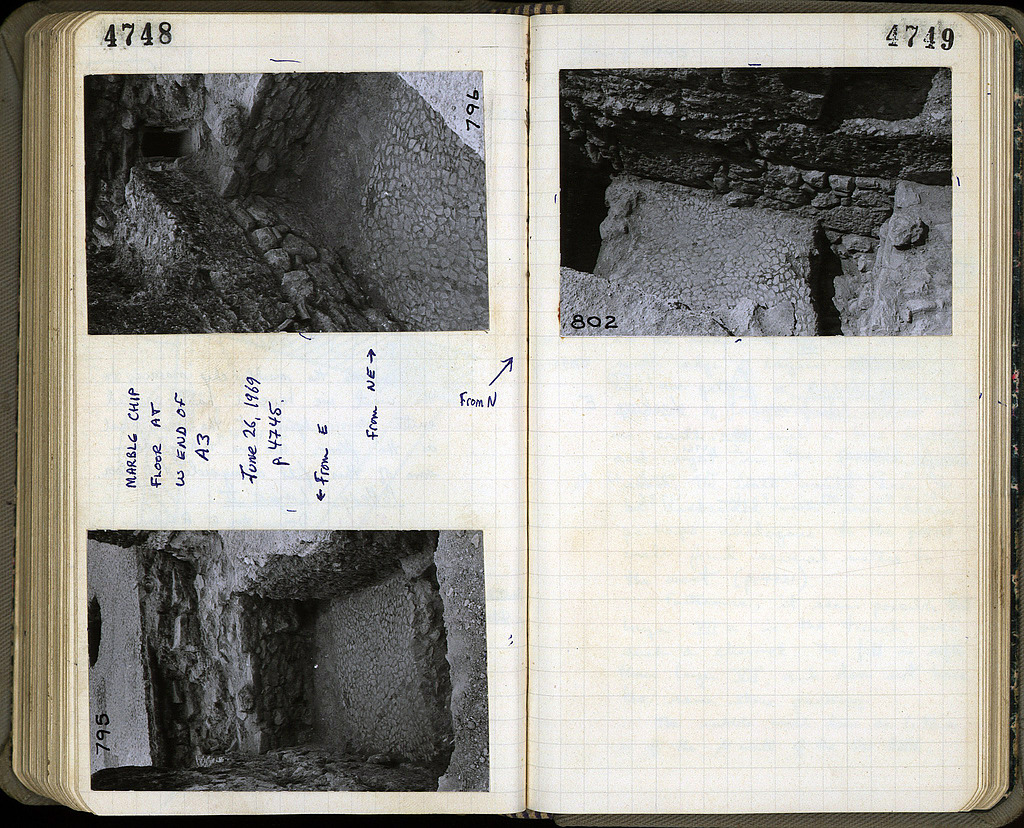 4748
796
MARBLE CHIP
FLOOR AT
W END OF
A3
June 26, 1969
p. 4745.
← From E
From NE →
795
From N
4749
802